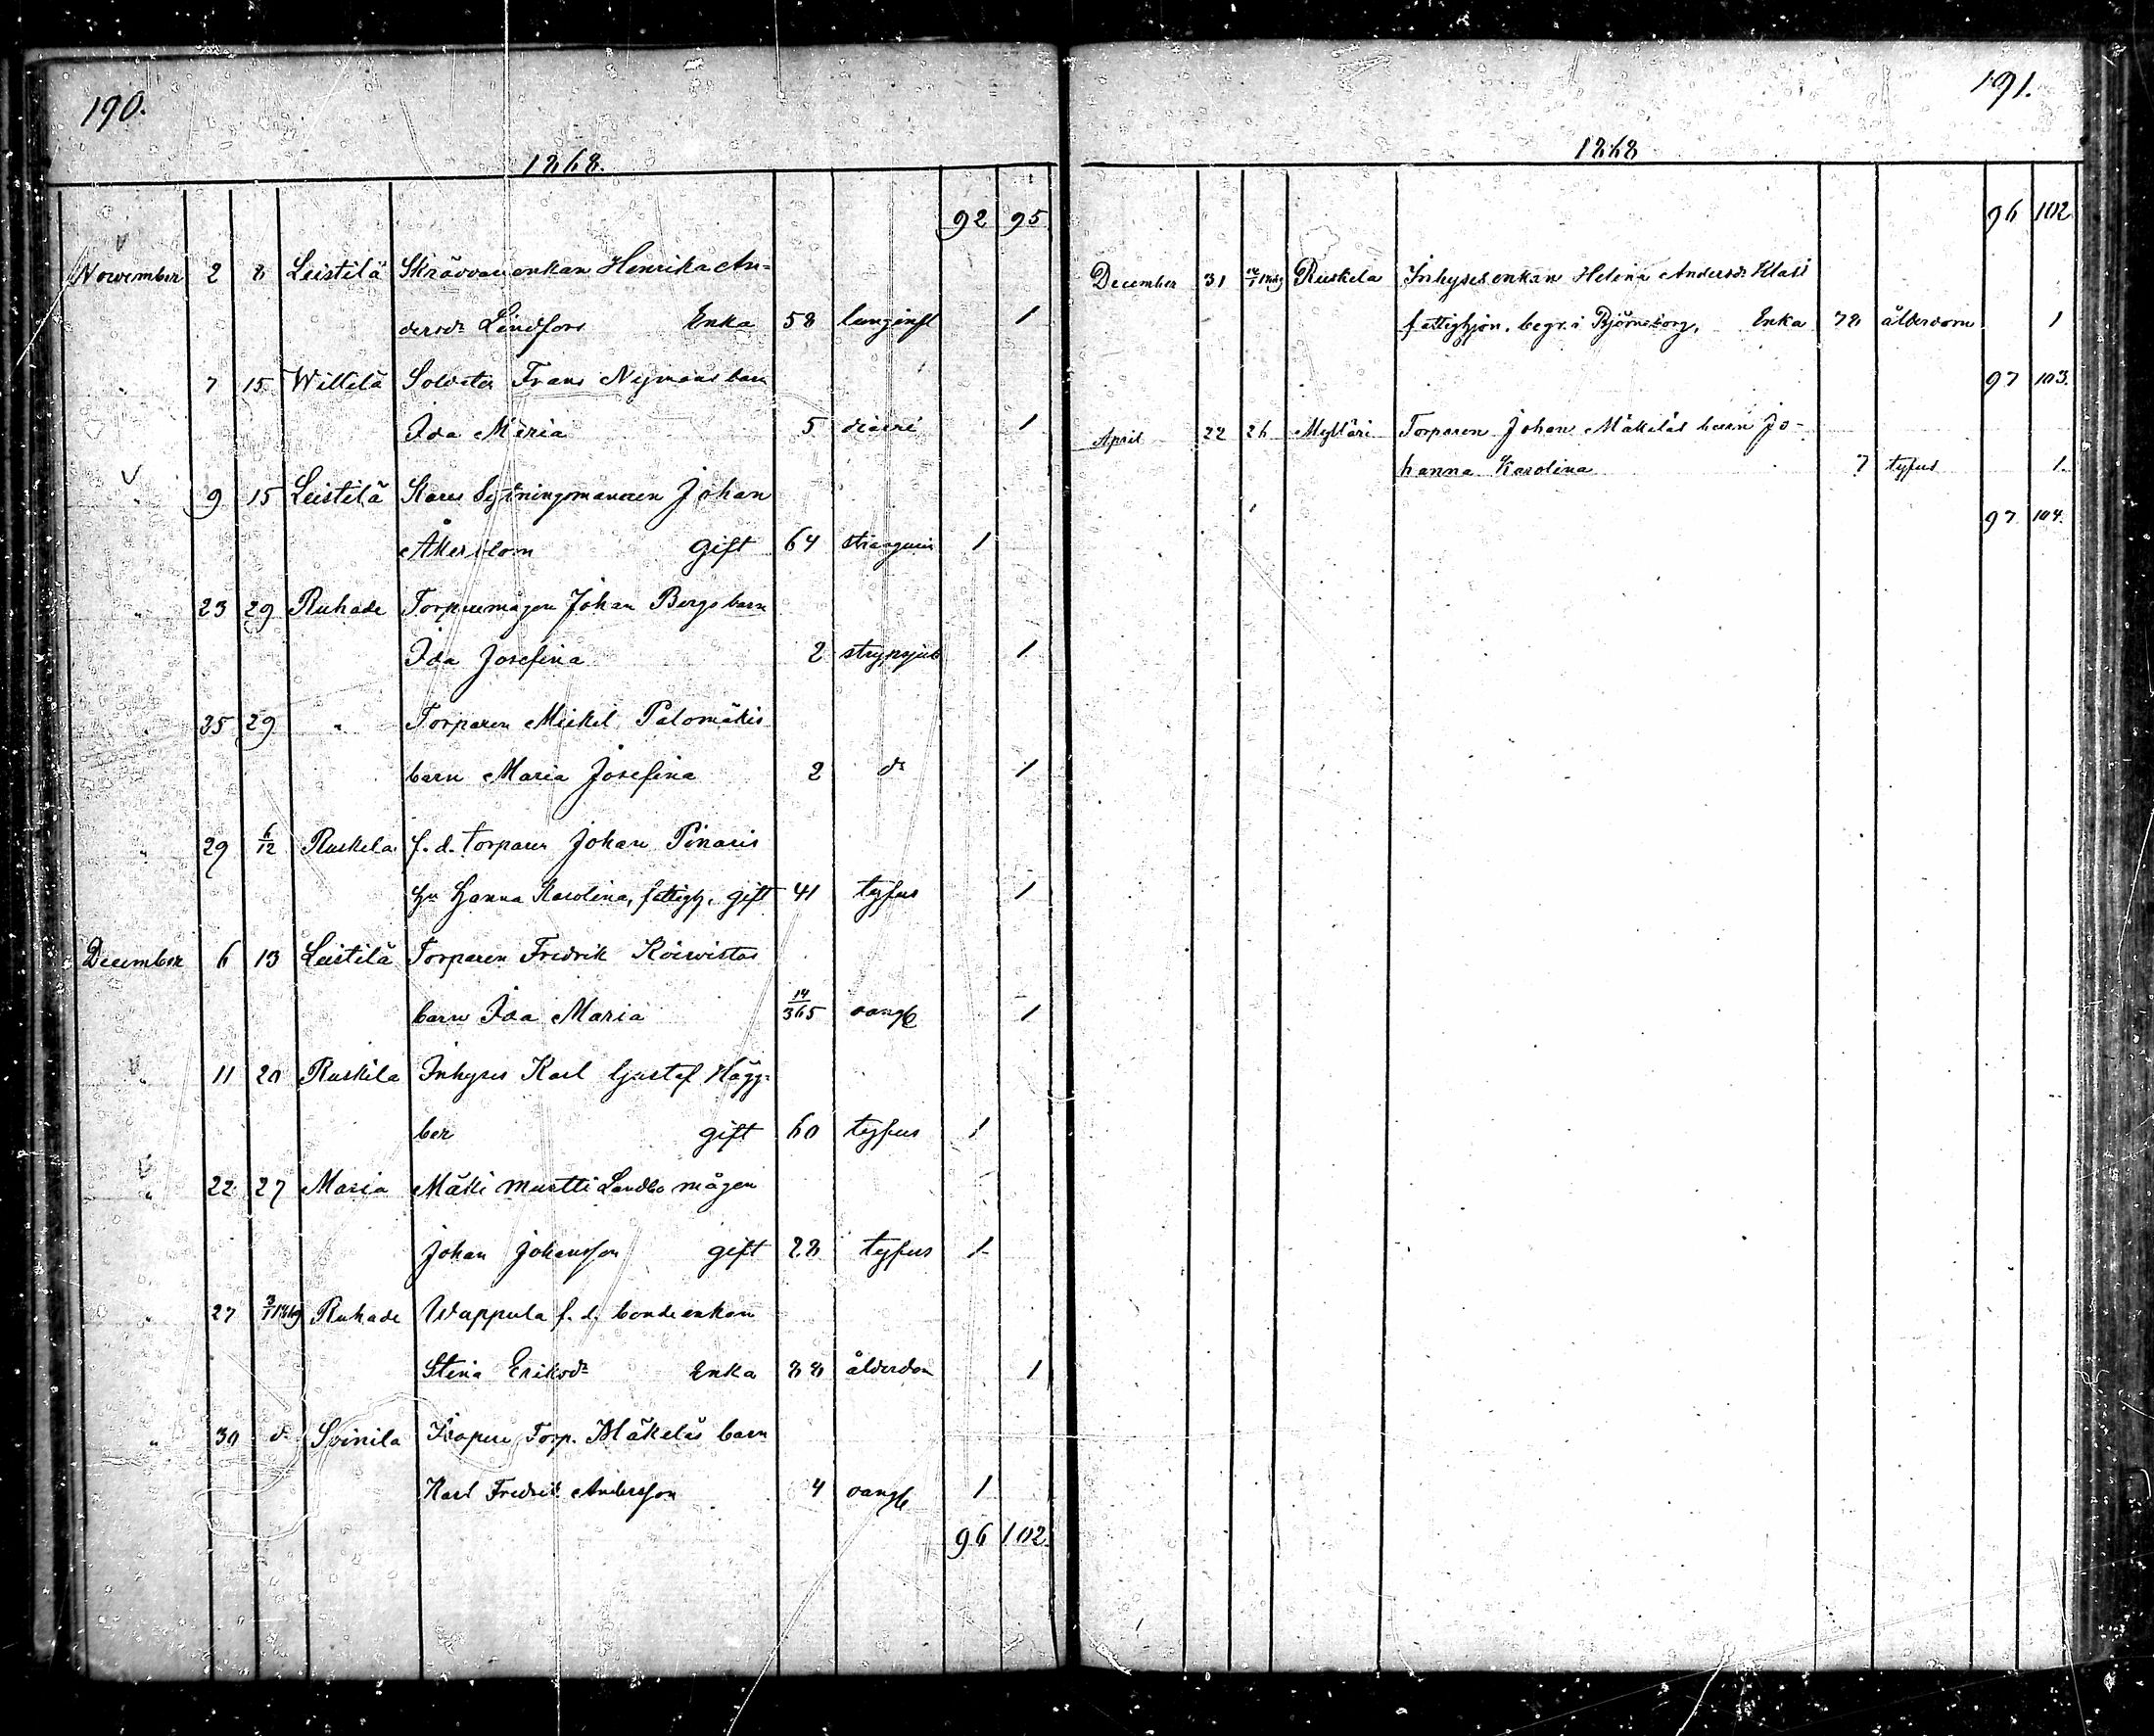 190.
1868.
92 95
November 2 8 Leistilä Skräddarenkan Henrika An-
dersdr Lindfors Enka 58 lunginfl 1
" 7 15 Wittilä Soldaten Frans Nymans barn
Ida Maria 5 1
" 9 15 Leistilä Sytningsmannen Johan
Åkerblom gift 64 1
" 23 29 Ruhade Torparemågen Johan Bergs barn
Ida Josefina 2 strypsjuk 1
" 25 29 " Torparen Mickel Palomäkis
barn Maria Josefina 2 do 1
" 29 6/12 Ruskela f. d. torparen Johan Pinaris
hu Hanna Karolina, fattigh. gift 41 tyfus 1
December 6 13 Leistilä Torparen Fredrik Koiwistos
barn Ida Maria 14/365 oangf 1
" 11 20 Ruskila Inhyses Karl Gustaf Hägg-
ber gift 60 tyfus 1
" 22 27 Maria Mäki Murtti Landbo mågen
Johan Johansson gift 28 tyfus 1
" 27 3/1 1869 Ruhade Wappula f. d. bondeenkan
Stina Eriksdr Enka 88 ålderdom 1
" 30 do Soinila Torp. Mäkeläs barn
Karl Fredrik Andersson 4 oangf 1
96 102.
191.
1868
96 102
December 31 Ruskela Inhysesenkan Helena Andersdr Klasi
fattighjon, begr. i Björneborg, Enka 78 ålderdom 1
97 103.
April 22 26 Mylläri Torparen Johan Mäkeläs barn Jo-
hanna Karolina 7 tyfus 1.
97 104.